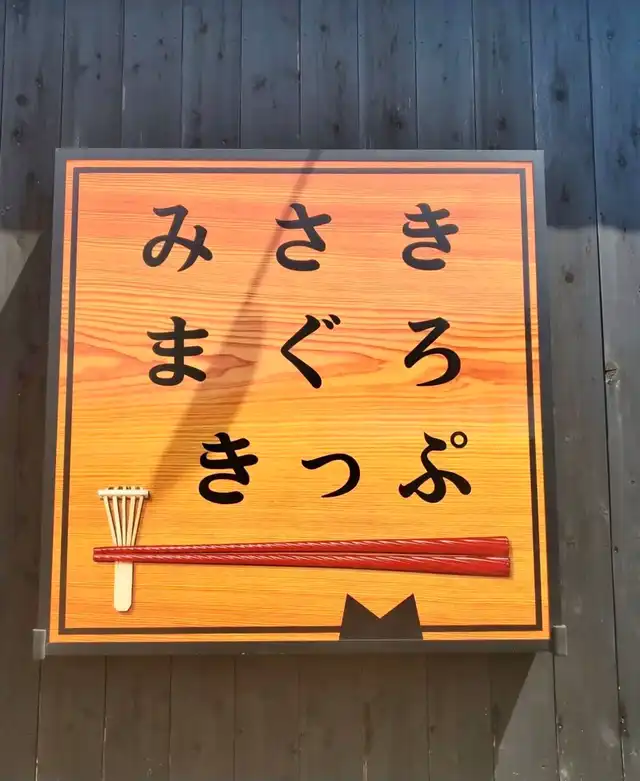 みさき
まぐろ
きっぷ